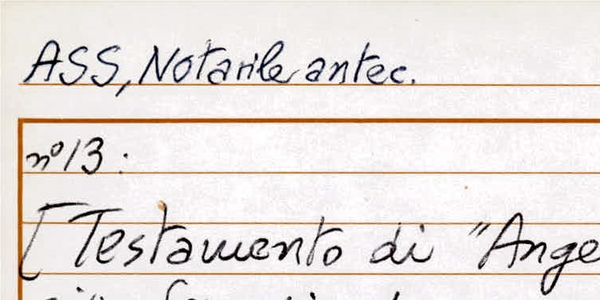 ASS, Notarile antec.
n° 13:
[Testamento di "Ange